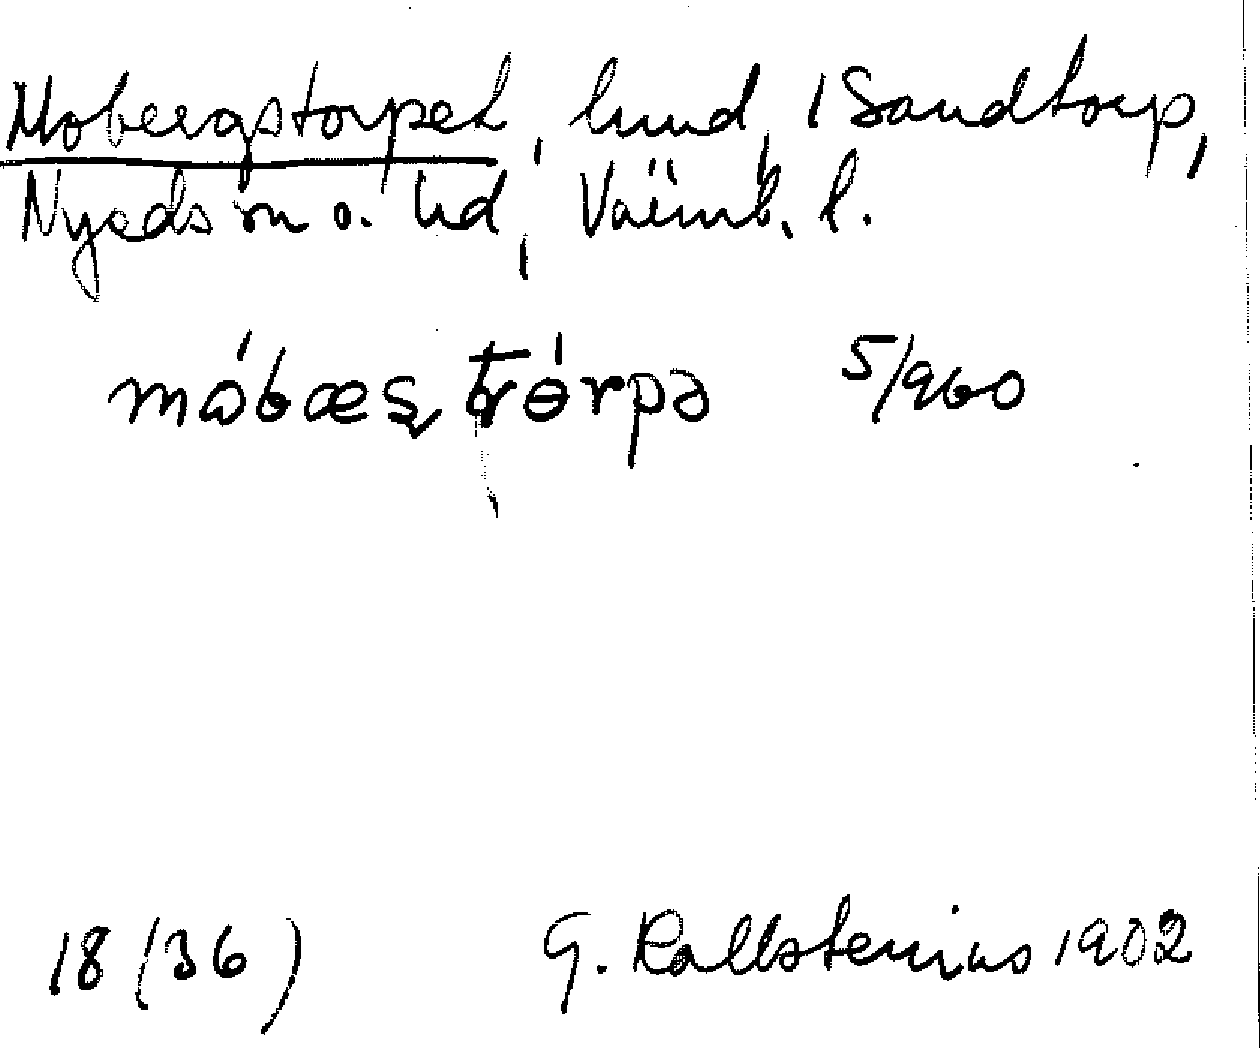 Mobergstorpet, lund, 1 Sandtorp,
Nyeds sn o. hd, Värml. l.
5/960
18 (36) G. Kallstenius 1902